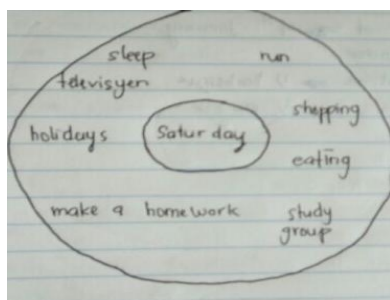 sleep
run
televisyen
shopping
holidays
Saturday
eating
make a homework
study
group